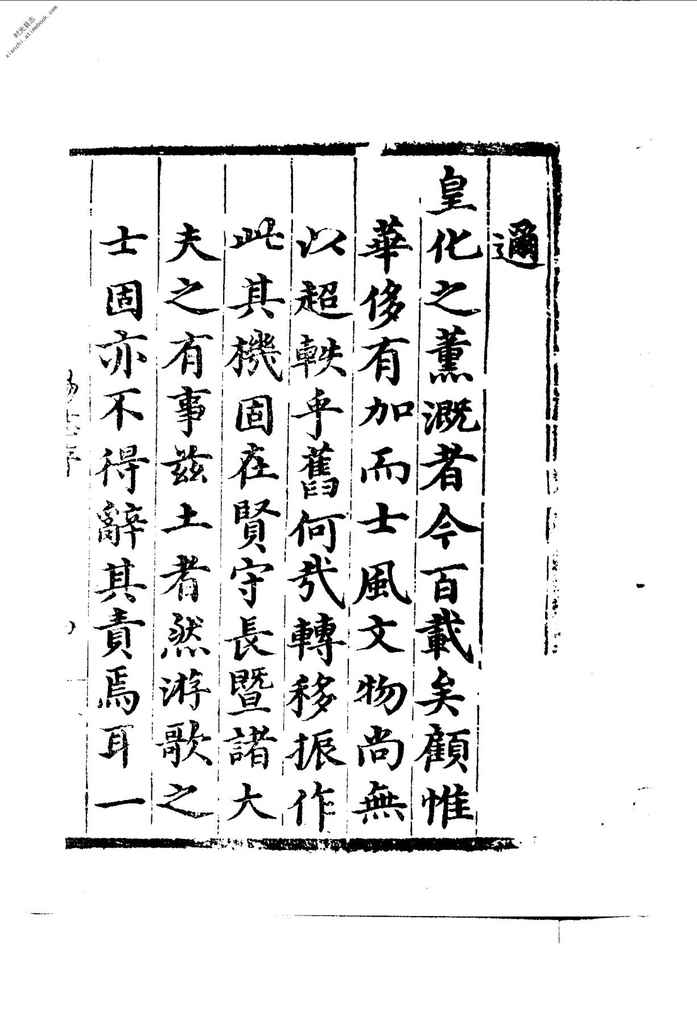 邇
皇化之薰漑者今百載矣顧惟
華侈有加而士風文物尚無
以超軼乎舊何㢤轉移振作
此其機固在賢守長暨諸大
夫之有事茲土者然游歌之
士固亦不得辭其責焉耳一
时光县志
xianzhi.atimebook.com